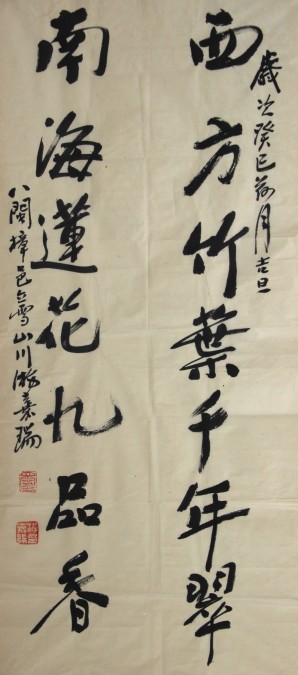 歲次癸巳荷月吉旦
西方竹葉千年翠
南海蓮花九品香
八閩樟邑雪山川游素瑞